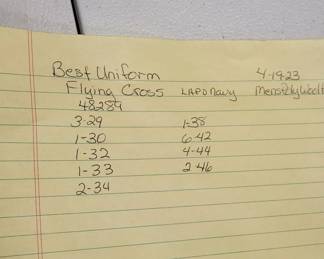 Best Uniform 4-19-23
Flying Cross LAPD Navy Mens Zip Wool
48289
3-29 1-38
1-30 6-42
1-32 4-44
1-33 2-46
2-34